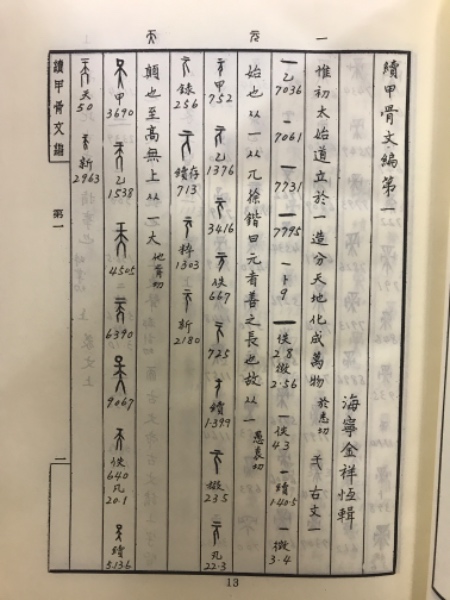 續甲骨文編第一
海寧金祥恆輯
惟初太始道立於一造分天地化成萬物 於悉切 古文一
一 乙7036 一 7061 一 7731 一 7795 一 卜9 一 佚28 徵2.56 一 佚43 一 續1.40.5 一 徵3.4
始也从一从兀徐鍇曰元者善之長也故从一 愚袁切
甲752 乙1376 3416 佚667 725 續1.39.9 掇235 凡22.3
錄256 續存713 粹1303 新2180
顛也至高無上从一大 他前切
甲3690 乙1538 4505 6390 9067 佚640 凡20.1 續5.13.6
天50 新2963
續甲骨文編
第一
一
13